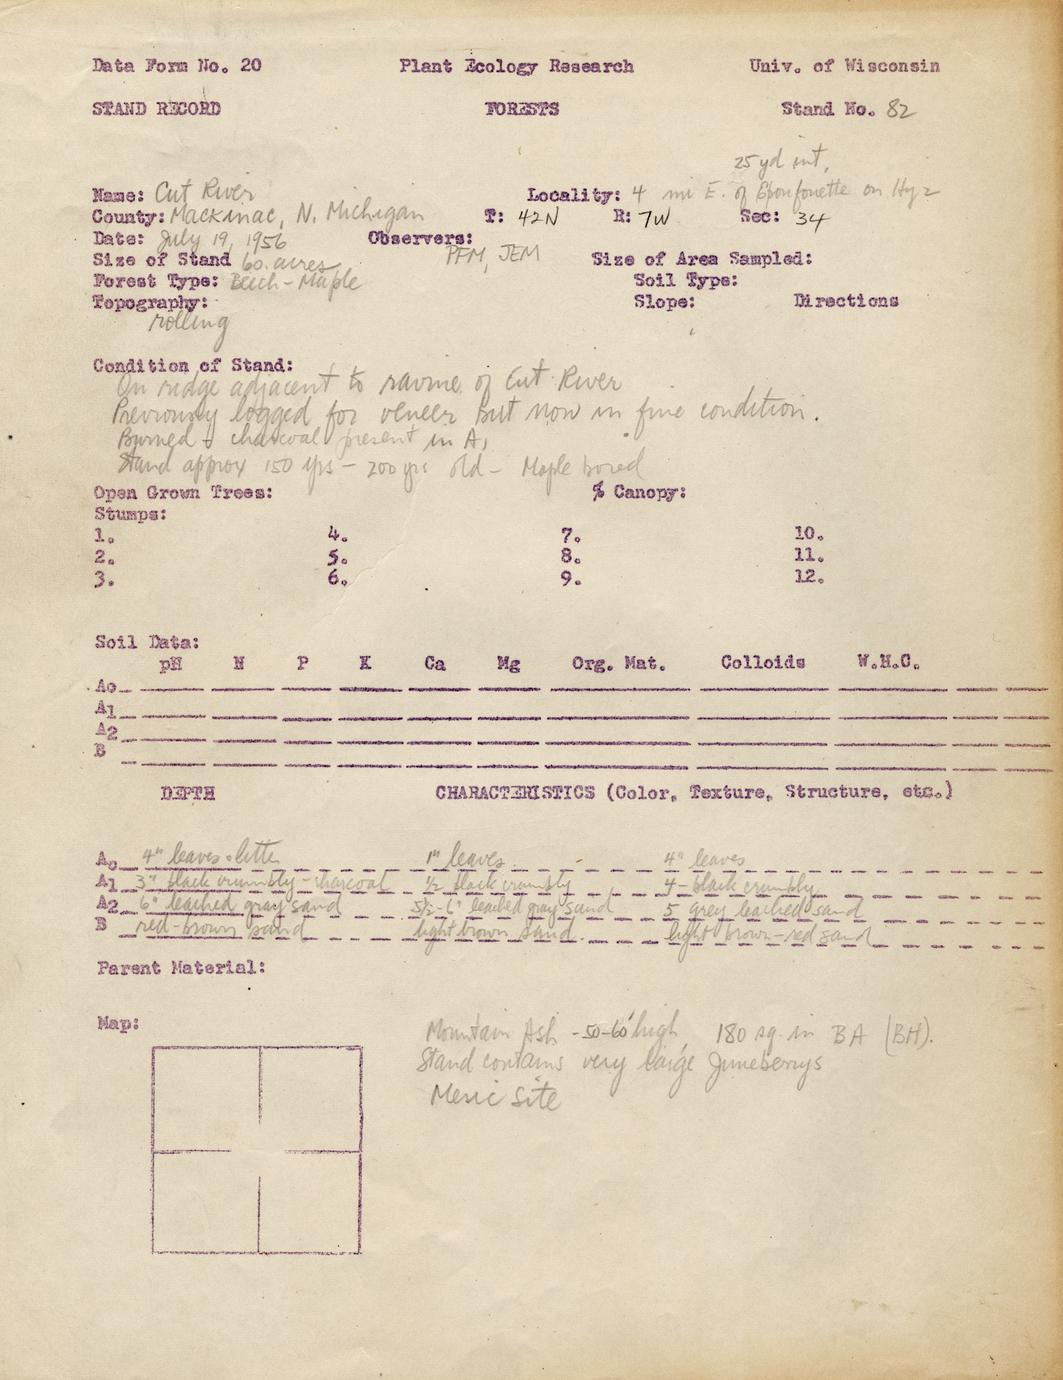 Data Form No. 20 Plant Ecology Research Univ. of Wisconsin
STAND RECORD FORESTS Stand No. 82
25 yd int,
Name: Cut River Locality: 4 mi E. of Epoufonette on Hy 2
County: Mackinac, N. Michigan T: 42N R: 7W Sec: 34
Date: July 19, 1956 Observers: PFM, JEM
Size of Stand 60 acres Size of Area Sampled:
Forest Type: Beech-Maple Soil Type:
Topography: Slope: Directions
rolling
Condition of Stand:
On ridge adjacent to ravine of Cut River
Previously logged for veneer but now in fine condition.
Burned - charcoal present in A1
Stand approx 150 yrs - 200 yrs old - Maple bored
Open Grown Trees: % Canopy:
Stumps:
1. 4. 7. 10.
2. 5. 8. 11.
3. 6. 9. 12.
Soil Data:
pH N P K Ca Mg Org. Mat. Colloids W.H.C.
Ao
A1
A2
B
DEPTH CHARACTERISTICS (Color, Texture, Structure, etc.)
Ao 4" leaves + litter 1" leaves 4" leaves
A1 3" black crumbly - charcoal 1/2 black crumbly 4 - black crumbly
A2 6" leached gray sand 5 1/2 - 6" leached gray sand 5 grey leached sand
B red-brown sand light brown sand light brown-red sand
Parent Material:
Map:
Mountain Ash - 50-60' high, 180 sq. in BA (BH).
Stand contains very large Juneberrys
Mesic Site